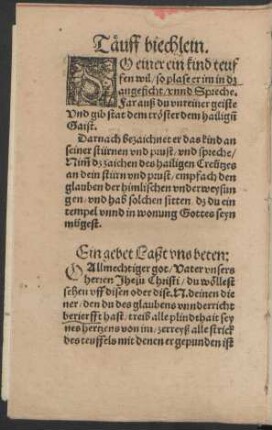 Täuff biechlein.
SO einer ein kind teuf
fen wil/ so plase er im in dz
angesicht/ vnnd Spreche.
Far auß du vnreiner geiste
Vnd gib stat dem tröster dem hailigñ
Gaist.
Darnach bezaichnet er das kind an
seiner stürnen vnd prust/ vnd spreche/
Nim dz zaichen des hailigen Creützes
an dein stürn vnd prust/ empfach den
glauben der himlischen vnderweysun
gen/ vnd hab solchen sitten dz du ein
tempel vnnd in wonung Gottes seyn
mögest.
Ein gebet Laßt vns beten:
O Allmechtiger got/ Vater vnsers
herzen Jhesu Christi/ du wöllest
sehen vff disen oder dise. N. deinen die
ner/ den du des glaubens vnnderricht
berierfft hast/ treib alle plindthait sey
nes hertzens von im/ zerreyß alle strick
des teuffels mit denen er gepunden ist